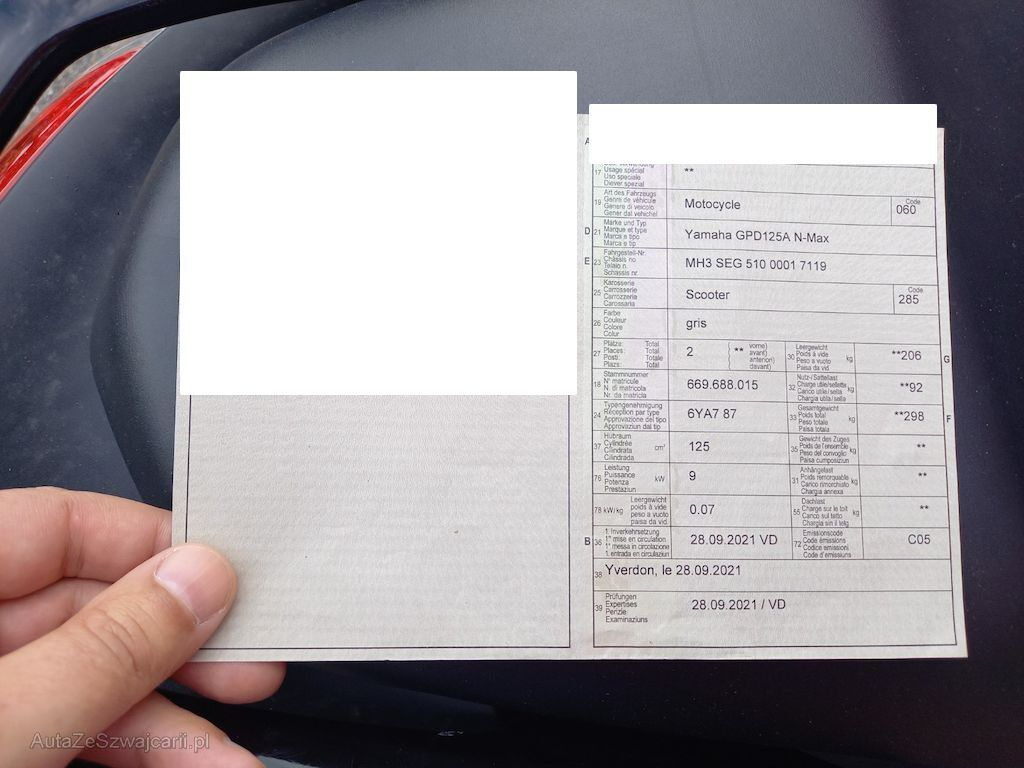 A
17
Usage spécial
Uso speciale
Diever spezial
**
19
Art des Fahrzeugs
Genre de véhicule
Genere di veicolo
Gener dal vehichel
Motocycle
Code
060
D 21
Marke und Typ
Marque et type
Marca e tipo
Marca e tip
Yamaha GPD125A N-Max
E 23
Fahrgestell-Nr.
Châssis no
Telaio n.
Schassis nr.
MH3 SEG 510 0001 7119
25
Karosserie
Carrosserie
Carrozzeria
Carossaria
Scooter
Code
285
26
Farbe
Couleur
Colore
Colur
gris
27
Plätze: Total
Places: Total
Posti: Totale
Plazs: Total
2
**
vorne)
avant)
anteriori)
davant)
30
Leergewicht
Poids à vide
Peso a vuoto
Paisa da vid
kg
**206
G
18
Stammnummer
N° matricule
N. di matricola
Nr. da matricla
669.688.015
32
Nutz-/Sattellast
Charge utile/sellette
Carico utile/sella
Chargia utila/sella
kg
**92
24
Typengenehmigung
Réception par type
Approvazione del tipo
Approvaziun dal tip
6YA7 87
33
Gesamtgewicht
Poids total
Peso totale
Paisa totala
kg
**298
F
37
Hubraum
Cylindrée
Cilindrata
Cilindrada
cm³
125
35
Gewicht des Zuges
Poids de l'ensemble
Peso del convoglio
Paisa cumposiziun
kg
**
76
Leistung
Puissance
Potenza
Prestaziun
kW
9
31
Anhängelast
Poids remorquable
Carico rimorchiato
Chargia annexa
kg
**
78 kW/kg
Leergewicht
poids à vide
peso a vuoto
paisa da vid
0.07
55
Dachlast
Charge sur le toit
Carico sul tetto
Chargia sin il tetg
kg
**
B 36
1. Inverkehrsetzung
1re mise en circulation
1a messa in circolazione
1. entrada en circulaziun
28.09.2021 VD
72
Emissionscode
Code émissions
Codice emissioni
Code d'emissiuns
C05
38
Yverdon, le 28.09.2021
39
Prüfungen
Expertises
Perizie
Examinaziuns
28.09.2021 / VD
AutaZeSzwajcarii.pl